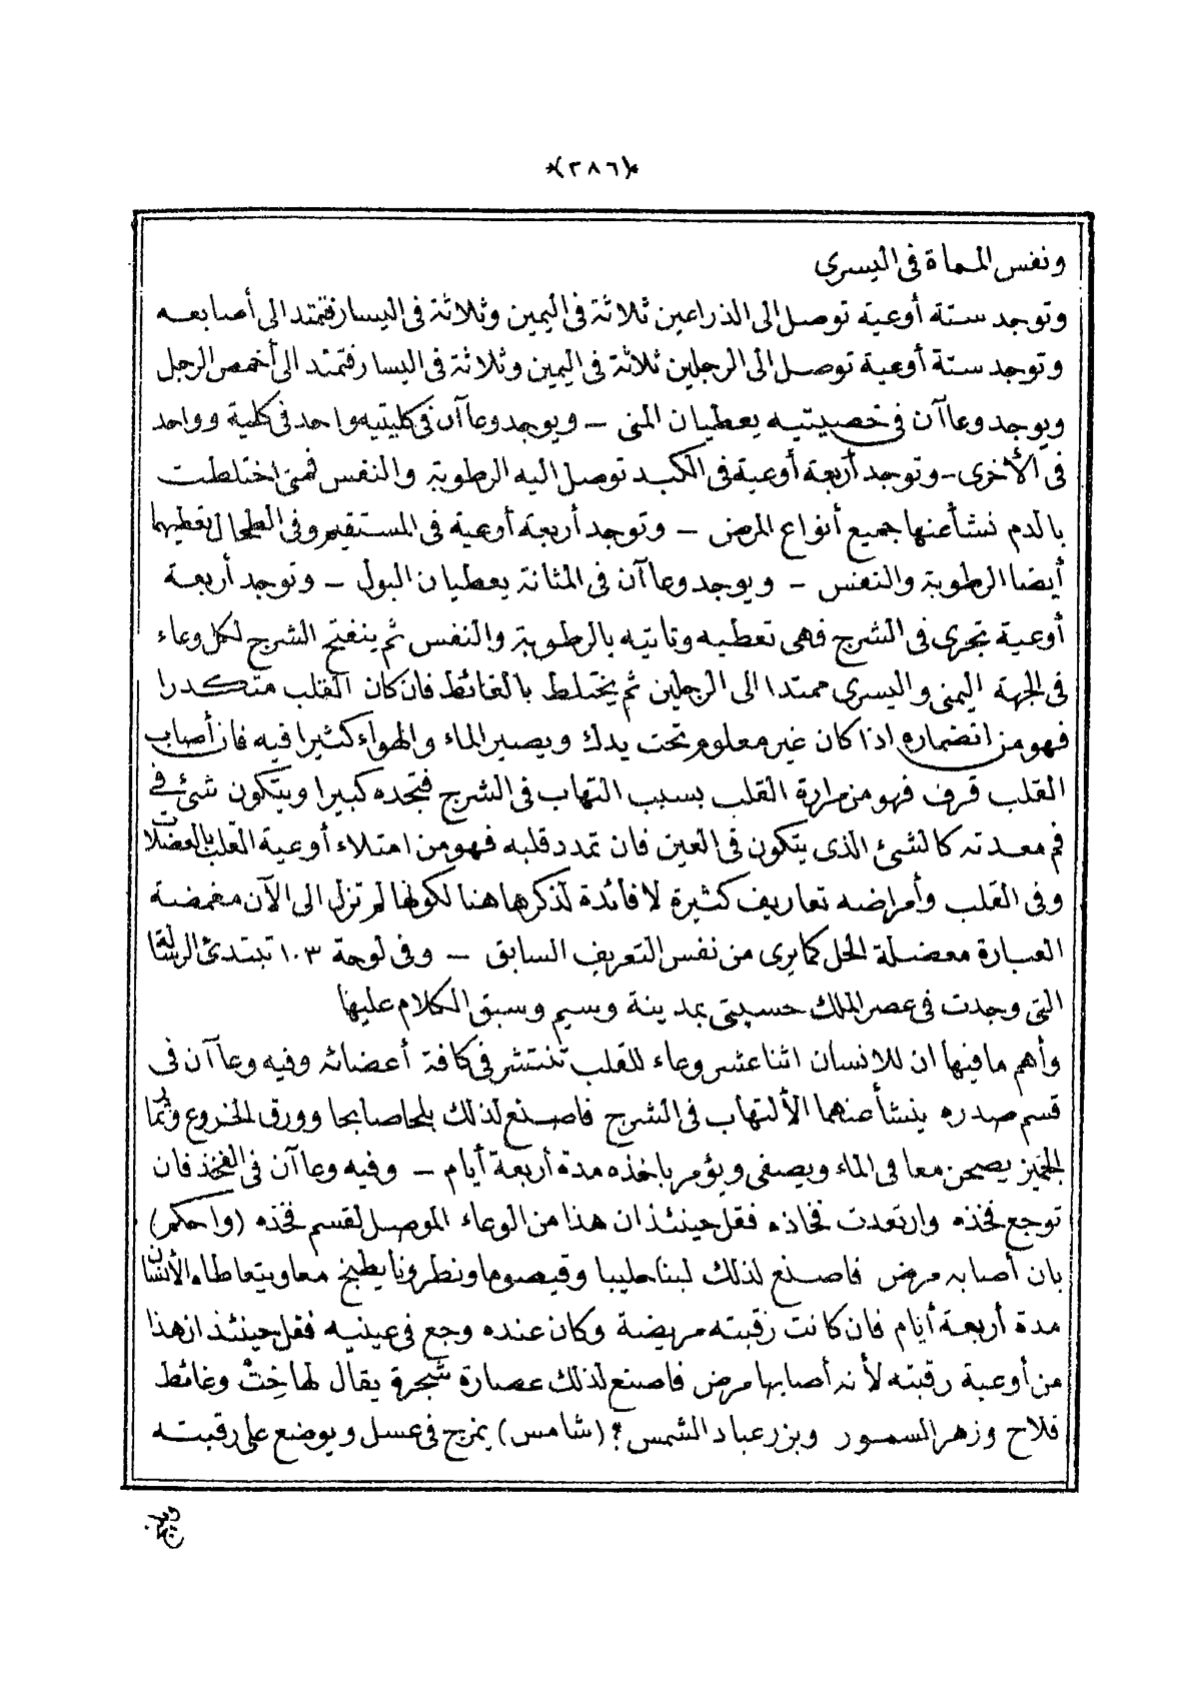 *(٢٨٦)*
ونفس المماة فى اليسرى
وتوجد ستة أوعية توصل الى الذراعين ثلاثة فى اليمين وثلاثة فى اليسار فتمتد الى أصابعه
وتوجد ستة أوعية توصل الى الرجلين ثلاثة فى اليمين وثلاثة فى اليسار فتمتد الى أخمص الرجل
ويوجد وعاآن فى خصيتيه يعطيان المنى – ويوجد وعاآن فى كليتيه واحد فى كلية وواحد
فى الأخرى – وتوجد أربعة أوعية فى الكبد توصل اليه الرطوبة والنفس فمتى اختلطت
بالدم نشأ عنها جميع أنواع المرض – وتوجد أربعة أوعية فى المستقيم وفى الطحال تعطيهما
أيضا الرطوبة والنفس – ويوجد وعاآن فى المثانة يعطيان البول – وتوجد أربعة
أوعية تجرى فى الشرج فهى تعطيه وتاتيه بالرطوبة والنفس ثم ينفتح الشرج لكل وعاء
فى الجهة اليمنى واليسرى ممتدا الى الرجلين ثم يختلط بالغائط فان كان القلب متكدرا
فهو من انضماره اذا كان غير معلوم تحت يدك ويصير الماء والهواء كثيرا فيه فان أصاب
القلب قرف فهو من مرارة القلب بسبب التهاب فى الشرج فتجده كبيرا ويتكون شئ فى
فم معدته كالشئ الذى يتكون فى العين فان تمدد قلبه فهو من امتلاء أوعية القلب بالعضلات
وفى القلب وأمراضه تعاريف كثيرة لا فائدة لذكرها هنا لكونها لم تزل الى الآن مغمضة
العبارة معضلة الحل كما يرى من نفس التعريف السابق – وفى لوحة ١٠٣ تبتدئ الرسالة
التى وجدت فى عصر الملك حسبتى بمدينة وسيم وسبق الكلام عليها
وأهم ما فيها ان للانسان اثنا عشر وعاء للقلب تنتشر فى كافة أعضائه وفيه وعاآن فى
قسم صدره ينشأ عنهما الألتهاب فى الشرج فاصنع لذلك بلحا صابحا وورق الخروع وثمار
الجميز يصحن معا فى الماء ويصفى ويؤمر باخذه مدة أربعة أيام – وفيه وعاآن فى الفخذ فان
توجع فخذه وارتعدت فخاذه فقل حينئذ ان هذا من الوعاء الموصل لقسم فخذه (واحكم)
بان أصابه مرض فاصنع لذلك لبنا حليبا وقيصوما ونطرونا يطبخ معا ويتعاطاه الأنسان
مدة أربعة أيام فان كانت رقبته مريضة وكان عنده وجع فى عينيه فقل حينئذ ان هذا
من أوعية رقبته لأنه أصابها مرض فاصنع لذلك عصارة شجرة يقال لها خِتْ وغائط
فلاح وزهر السمور وبزر عباد الشمس ؟ (شامس) يمزج فى عسل ويوضع على رقبته